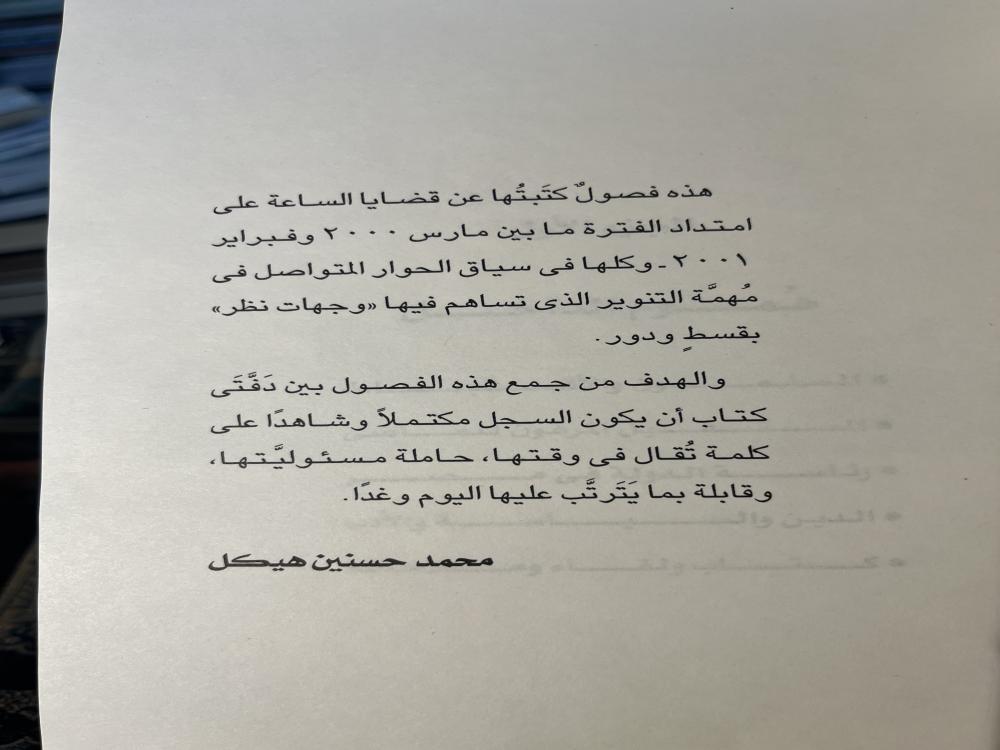 هذه فصولٌ كتَبتُها عن قضايا الساعة على
امتداد الفترة ما بين مارس ٢٠٠٠ وفبراير
٢٠٠١ - وكلها فى سياق الحوار المتواصل فى
مُهمَّة التنوير الذى تساهم فيها «وجهات نظر»
بقسطٍ ودور.
والهدف من جمع هذه الفصول بين دَفَّتَى
كتاب أن يكون السجل مكتملاً وشاهدًا على
كلمة تُقال فى وقتها، حاملة مسئوليَّتها،
وقابلة بما يَتَرتَّب عليها اليوم وغدًا.
محمد حسنين هيكل